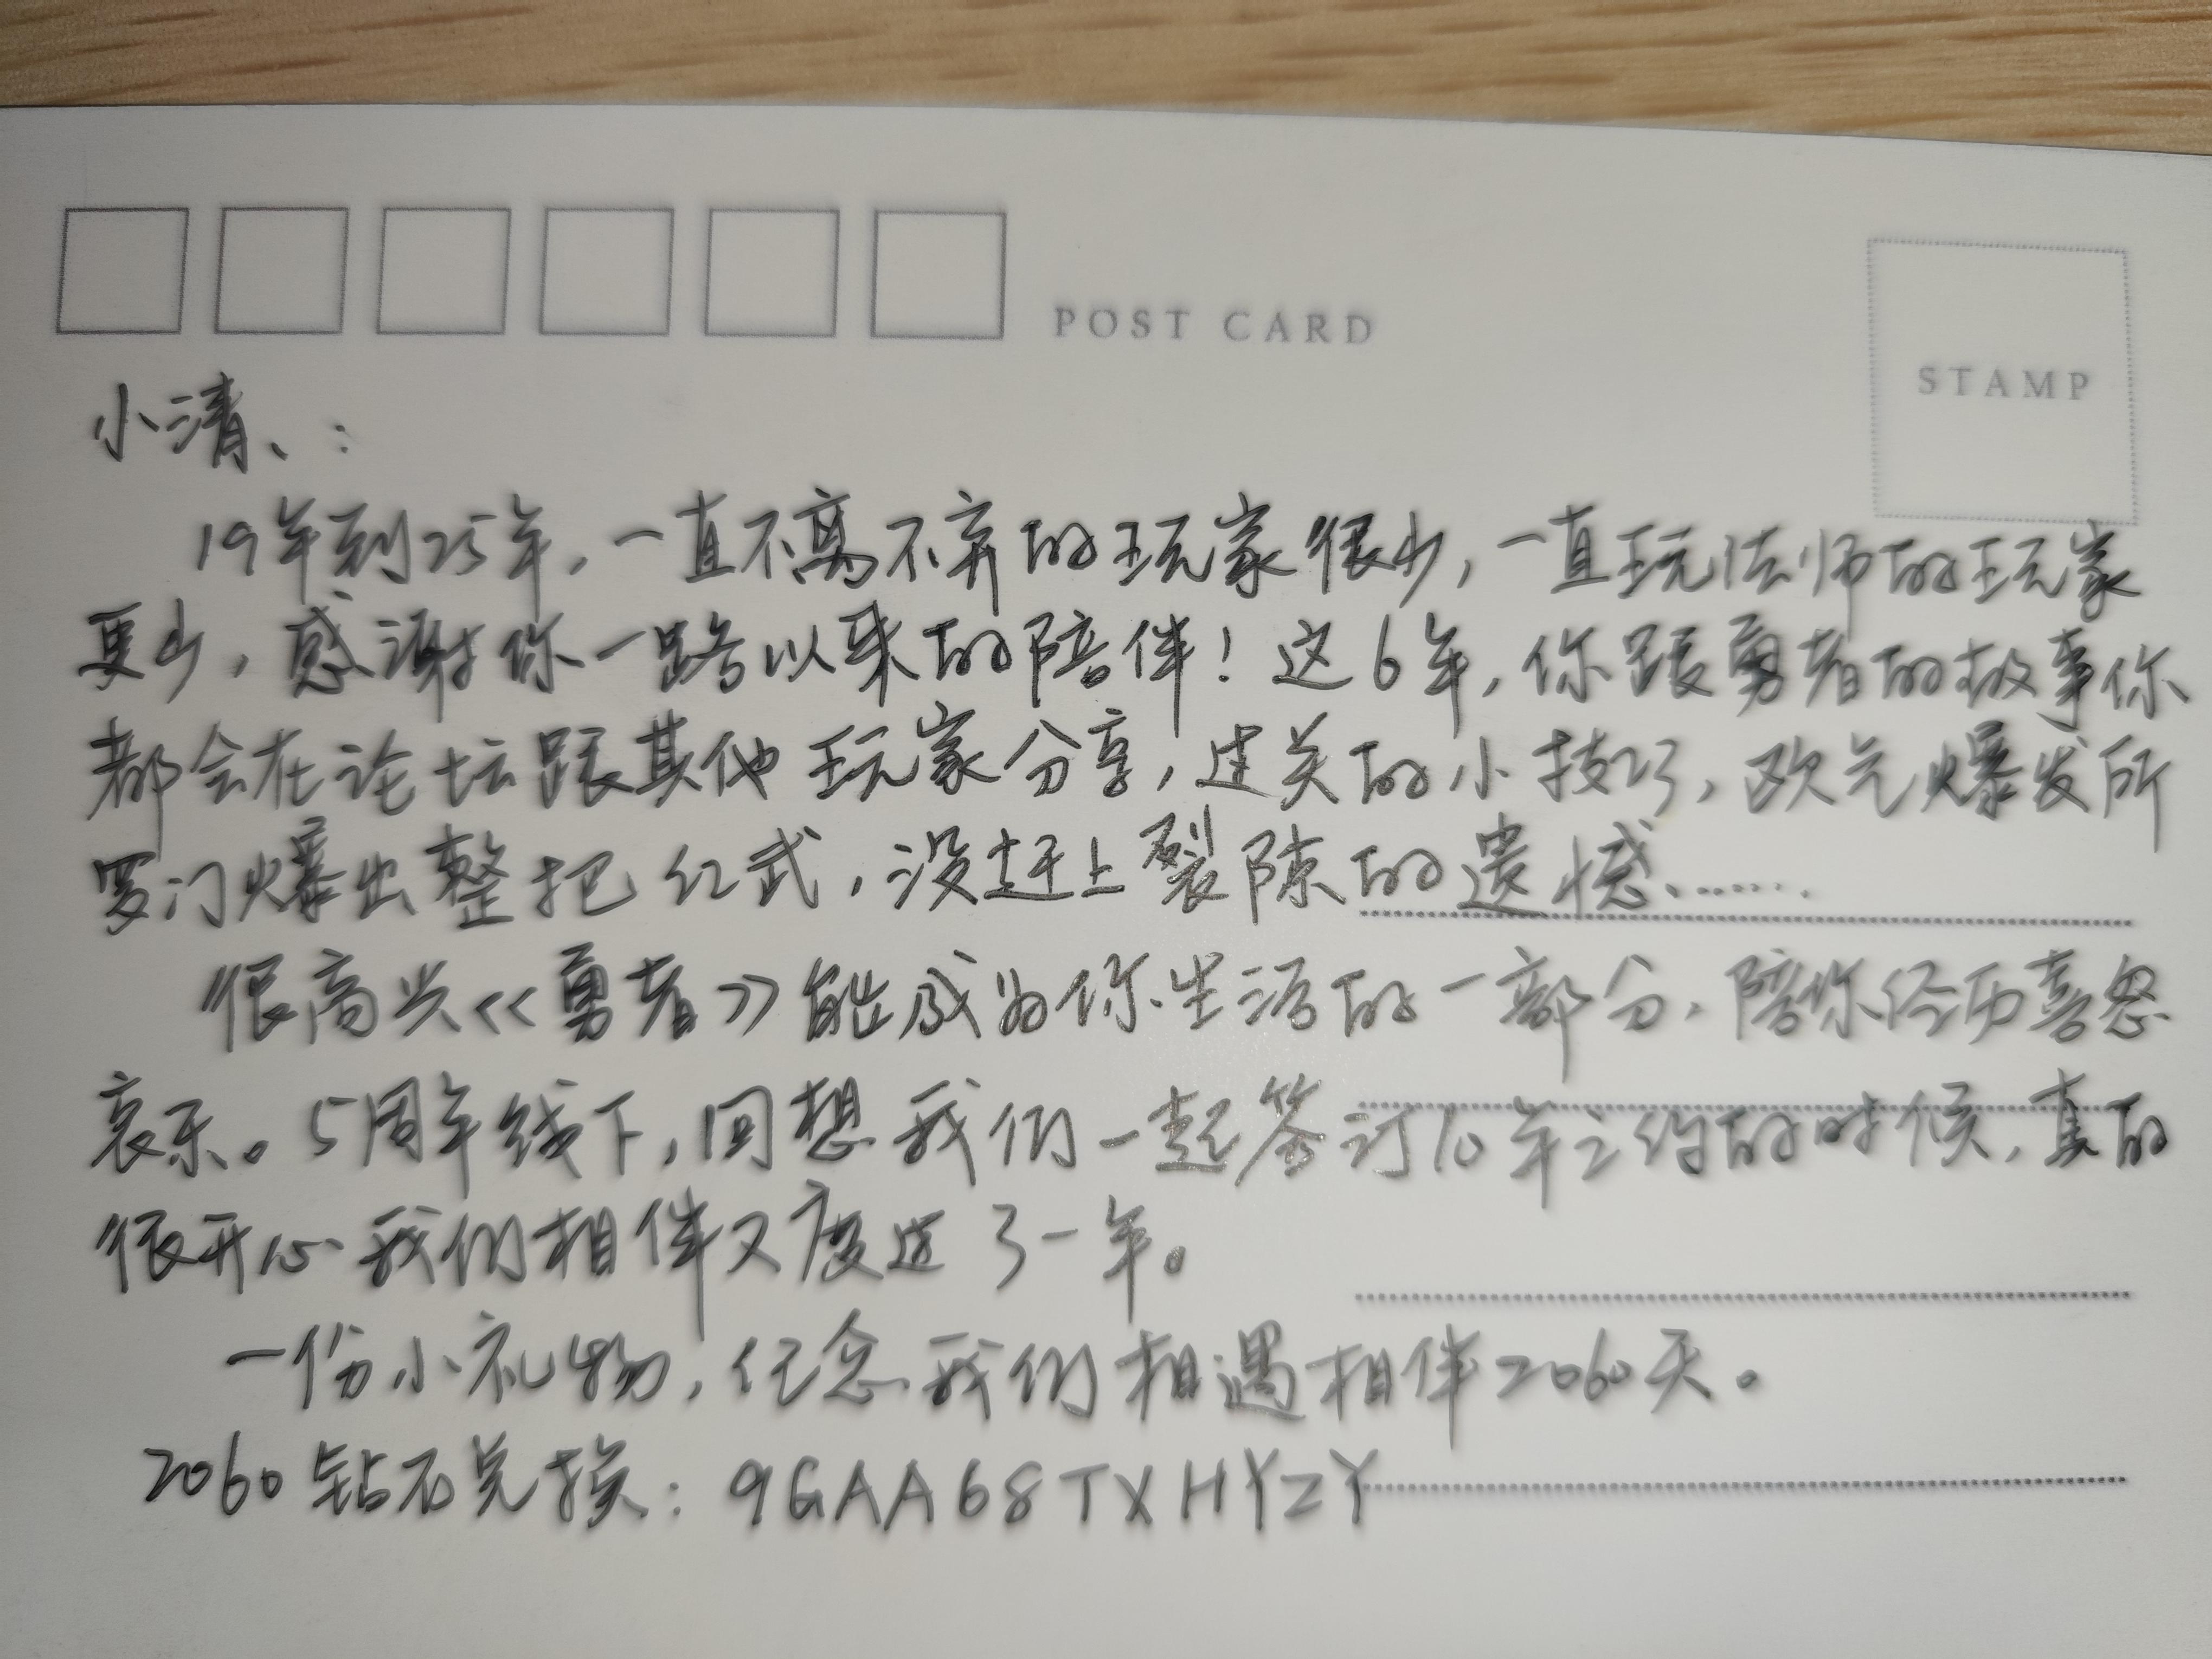 POST CARD
STAMP
小清、:
19年到25年,一直不离不弃的玩家很少,一直玩法师的玩家
更少,感谢你一路以来的陪伴!这6年,你跟勇者的故事你
都会在论坛跟其他玩家分享,过关的小技巧,欧气爆发所
罗门爆出整把红武,没赶上裂隙的遗憾.......
很高兴《勇者》能成为你生活的一部分,陪你经历喜怒
哀乐。5周年线下,回想我们一起签订10年之约的时候,真的
很开心我们相伴又度过了一年。
一份小礼物,纪念我们相遇相伴2060天。
2060钻石兑换:9GAA68TXHYZY